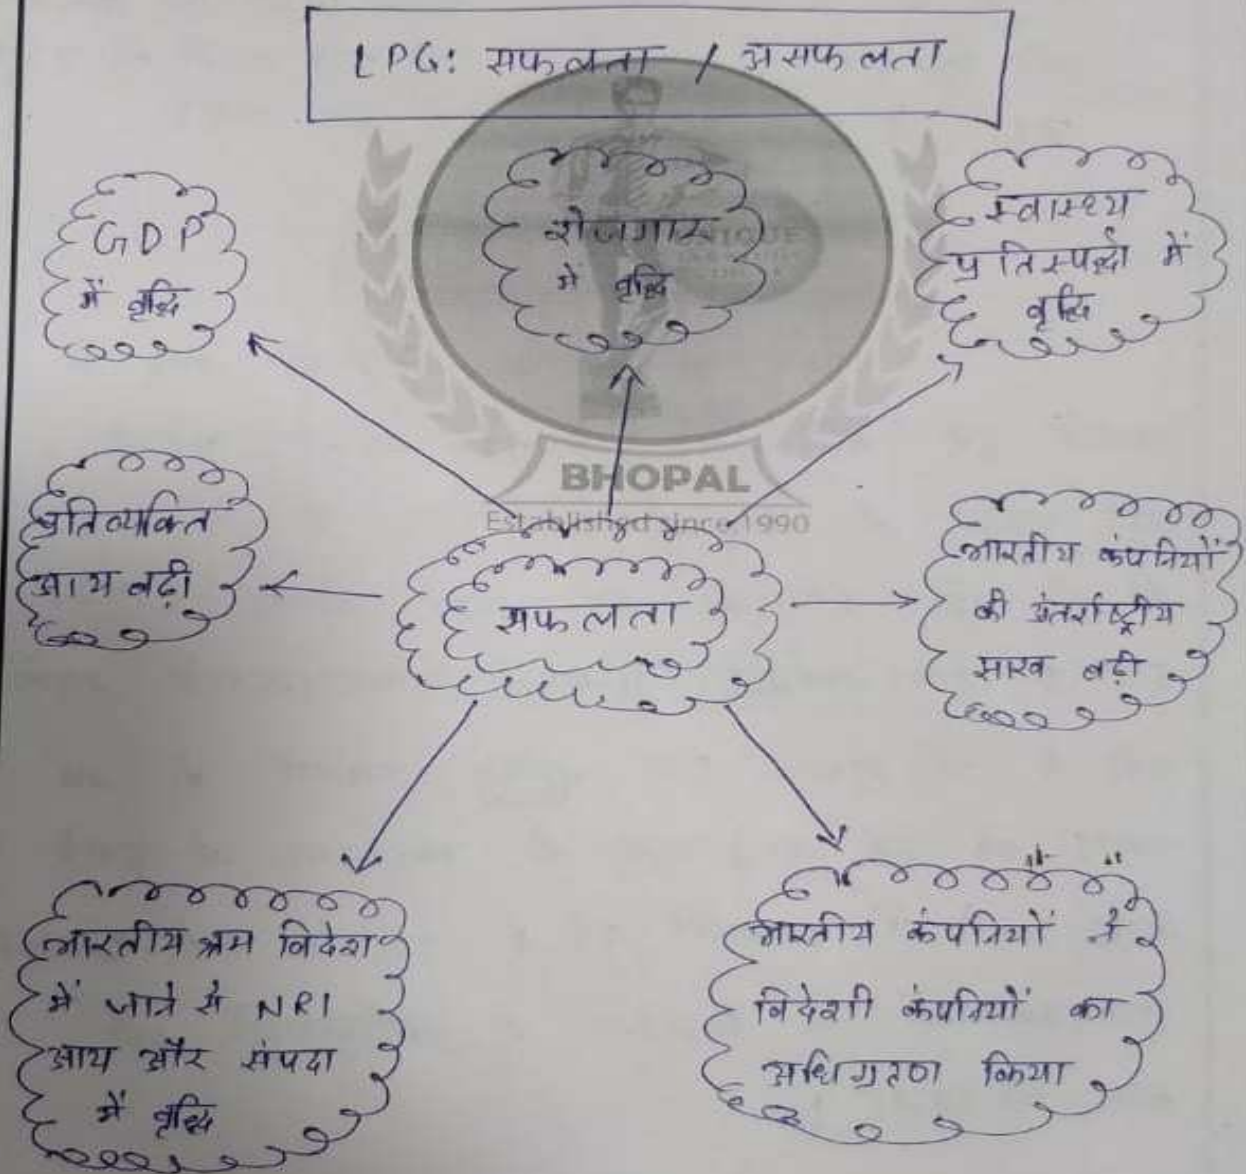 LPG: सफलता / असफलता
GDP
में वृद्धि
रोजगार
में वृद्धि
स्वास्थ्य
प्रतिस्पर्द्धा में
वृद्धि
प्रतिव्यक्ति
आय बढ़ी
BHOPAL
Established since 1990
सफलता
भारतीय कंपनियों
की अंतर्राष्ट्रीय
साख बढ़ी
भारतीय श्रम विदेश
में जाने से NRI
आय और संपदा
में वृद्धि
भारतीय कंपनियों ने
विदेशी कंपनियों का
अधिग्रहण किया